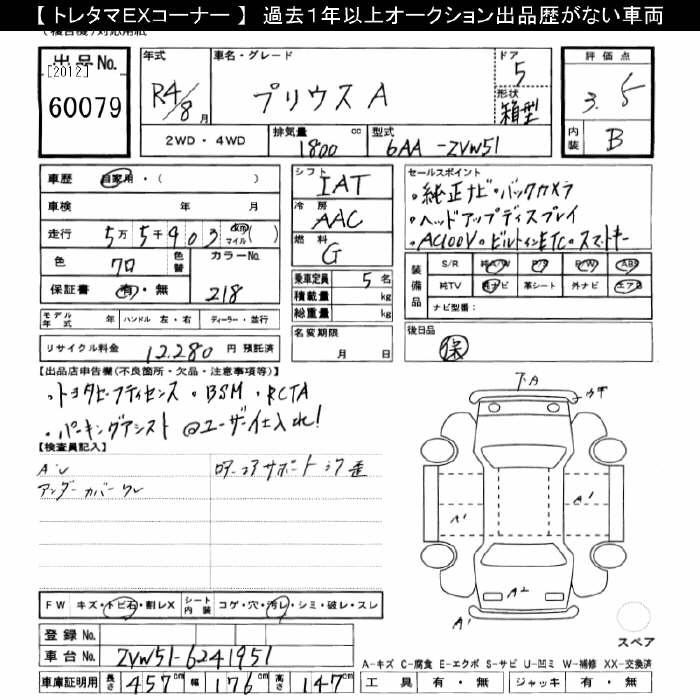 【 トレタマEXコーナー 】 過去1年以上オークション出品歴がない車両
出品No.
[2012]
60079
年式
R4/8月
車名・グレード
プリウス A
ドア
5
形状
箱型
評価点
3.5
内装
B
2WD・4WD
排気量
1800 cc
型式
6AA-ZVW51
車歴 自家用・( )
車検 年 月
走行 5万5千903 km マイル( )
色 クロ 色替 カラーNo.
218
保証書 有・無
モデル年式 年 ハンドル 左・右 ディーラー・並行
リサイクル料金 12,280 円 預託済
シフト
IAT
冷房
AAC
燃料
G
乗車定員 5 名
積載量 kg
総重量 kg
名変期限
月 日
セールスポイント
・純正ナビ・バックカメラ
・ヘッドアップディスプレイ
・AC100V・ビルトインETC・スマートキー
装備品
S/R 純A/W P/S P/W ABS
純TV 純ナビ 革シート 外ナビ エアB
ナビ型番:
後日品
保
【出品店申告欄(不良箇所・欠品・注意事項等)】
・トヨタセーフティセンス ・BSM ・RCTA
・パーキングアシスト @ユーザー仕入れ!
【検査員記入】
アンダーカバーワレ
F.A
A1
A1
A2
A1
FW キズ・トビ石・割レX シート内装 コゲ・穴・汚レ・シミ・破レ・スレ
登録No.
車台No. ZVW51-6241951
車庫証明用 長さ 457cm 幅 176cm 高さ 147cm
スペア
A-キズ C-腐食 E-エクボ S-サビ U-凹ミ W-補修 XX-交換済
工具 有・無 ジャッキ 有・無